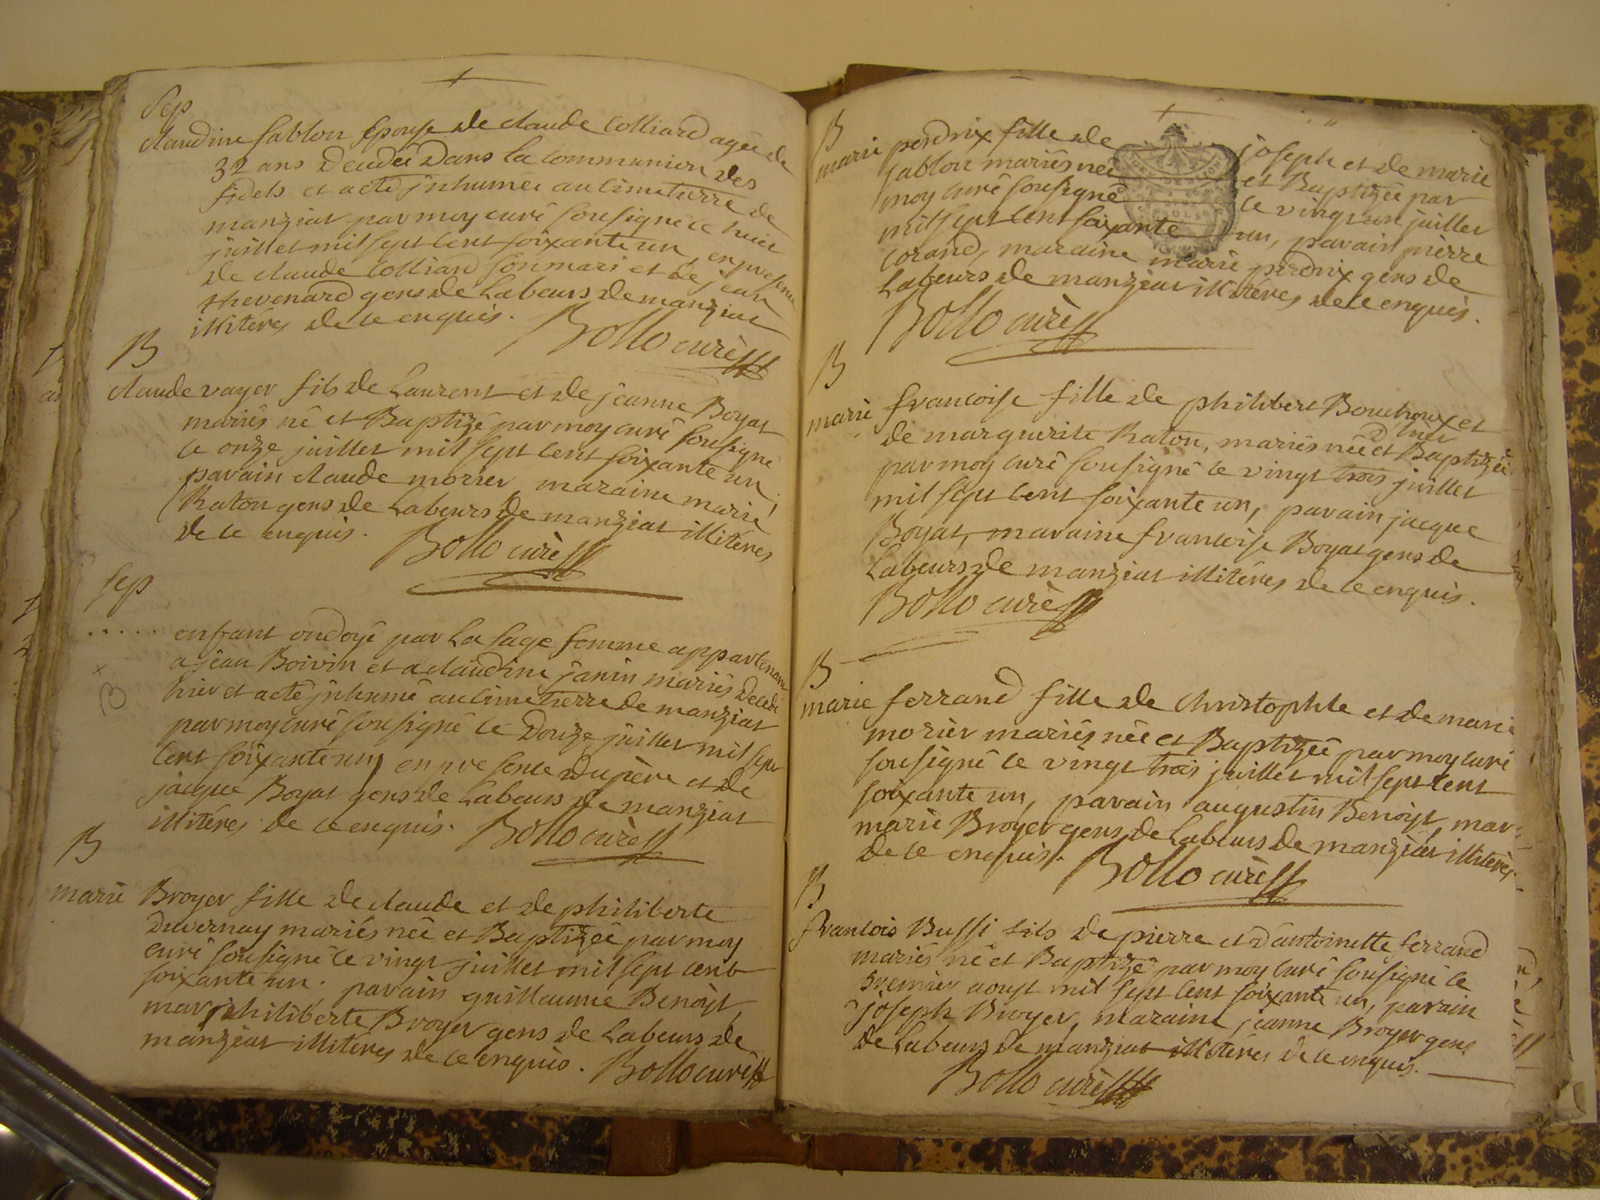 Sep
claudine sablon Epouse de claude Colliard agée de
32 ans decedée Dans la communion des
fidels et a eté jnhumée au cimetierre de
manziat par moy curé sousigné le huit
juillet mil sept cent soixante un, en presence
de claude Colliard son mari et de jean
thevenard gens de Labeurs de manziat
illiterés de ce enquis. Bollo curé
B
claude vayer fils de Laurent et de jeanne Boyat
mariés né et Baptizé par moy curé sousigné
le onze juillet mil sept cent soixante un,
parain claude morier maraine marie
Raton gens de Labeurs de manziat illiterés
de ce enquis. Bollo curé
Sep
..... enfant ondoyé par la sage femme appartenant
a jean Boivin et a claudine janin mariés decedé
hier et a eté jnhumé au cimetierre de manziat
par moy curé sousigné le Douze juillet mil sept
cent soixante un, en presence du père et de
jacque Boyat gens de Labeurs de manziat
illiterés de ce enquis. Bollo curé
B
marie Broyer fille de claude et de philiberte
Duvernay mariés née et Baptizée par moy
curé sousigné le vingt juillet mil sept cent
soixante un. parain guillaume Benoist,
mar philiberte Broyer gens de Labeurs de
manziat illiterés de ce enquis. Bollo curé
B
marie perdrix fille de joseph et de marie
sablon mariés née et Baptizée par
moy curé sousigné le vingt un juillet
mil sept cent soixante un, parain pierre
Corand, maraine marie perdrix gens de
Labeurs de manziat illiterés de ce enquis.
Bollo curé
B
marie francoise fille de philibert Bouchoux et
de marguerite Raton, mariés née hier et Baptizée
par moy curé sousigné le vingt trois juillet
mil sept cent soixante un, parain jacque
Boyat, maraine francoise Boyat gens de
Labeurs de manziat illiterés de ce enquis.
Bollo curé
B
marie ferrand fille de Christophle et de marie
morier mariés née et Baptizée par moy curé
sousigné le vingt trois juillet mil sept cent
soixante un, parain augustin Benoist, mar
marie Broyer gens de Labeurs de manziat illiterés
de ce enquis. Bollo curé
B
francois Buffi fils de pierre et d'antoinette ferrand
mariés né et Baptizé par moy curé sousigné le
premier aoust mil sept cent soixante un, parain
joseph Broyer, maraine jeanne Broyer gens
de Labeurs de manziat illiterés de ce enquis.
Bollo curé